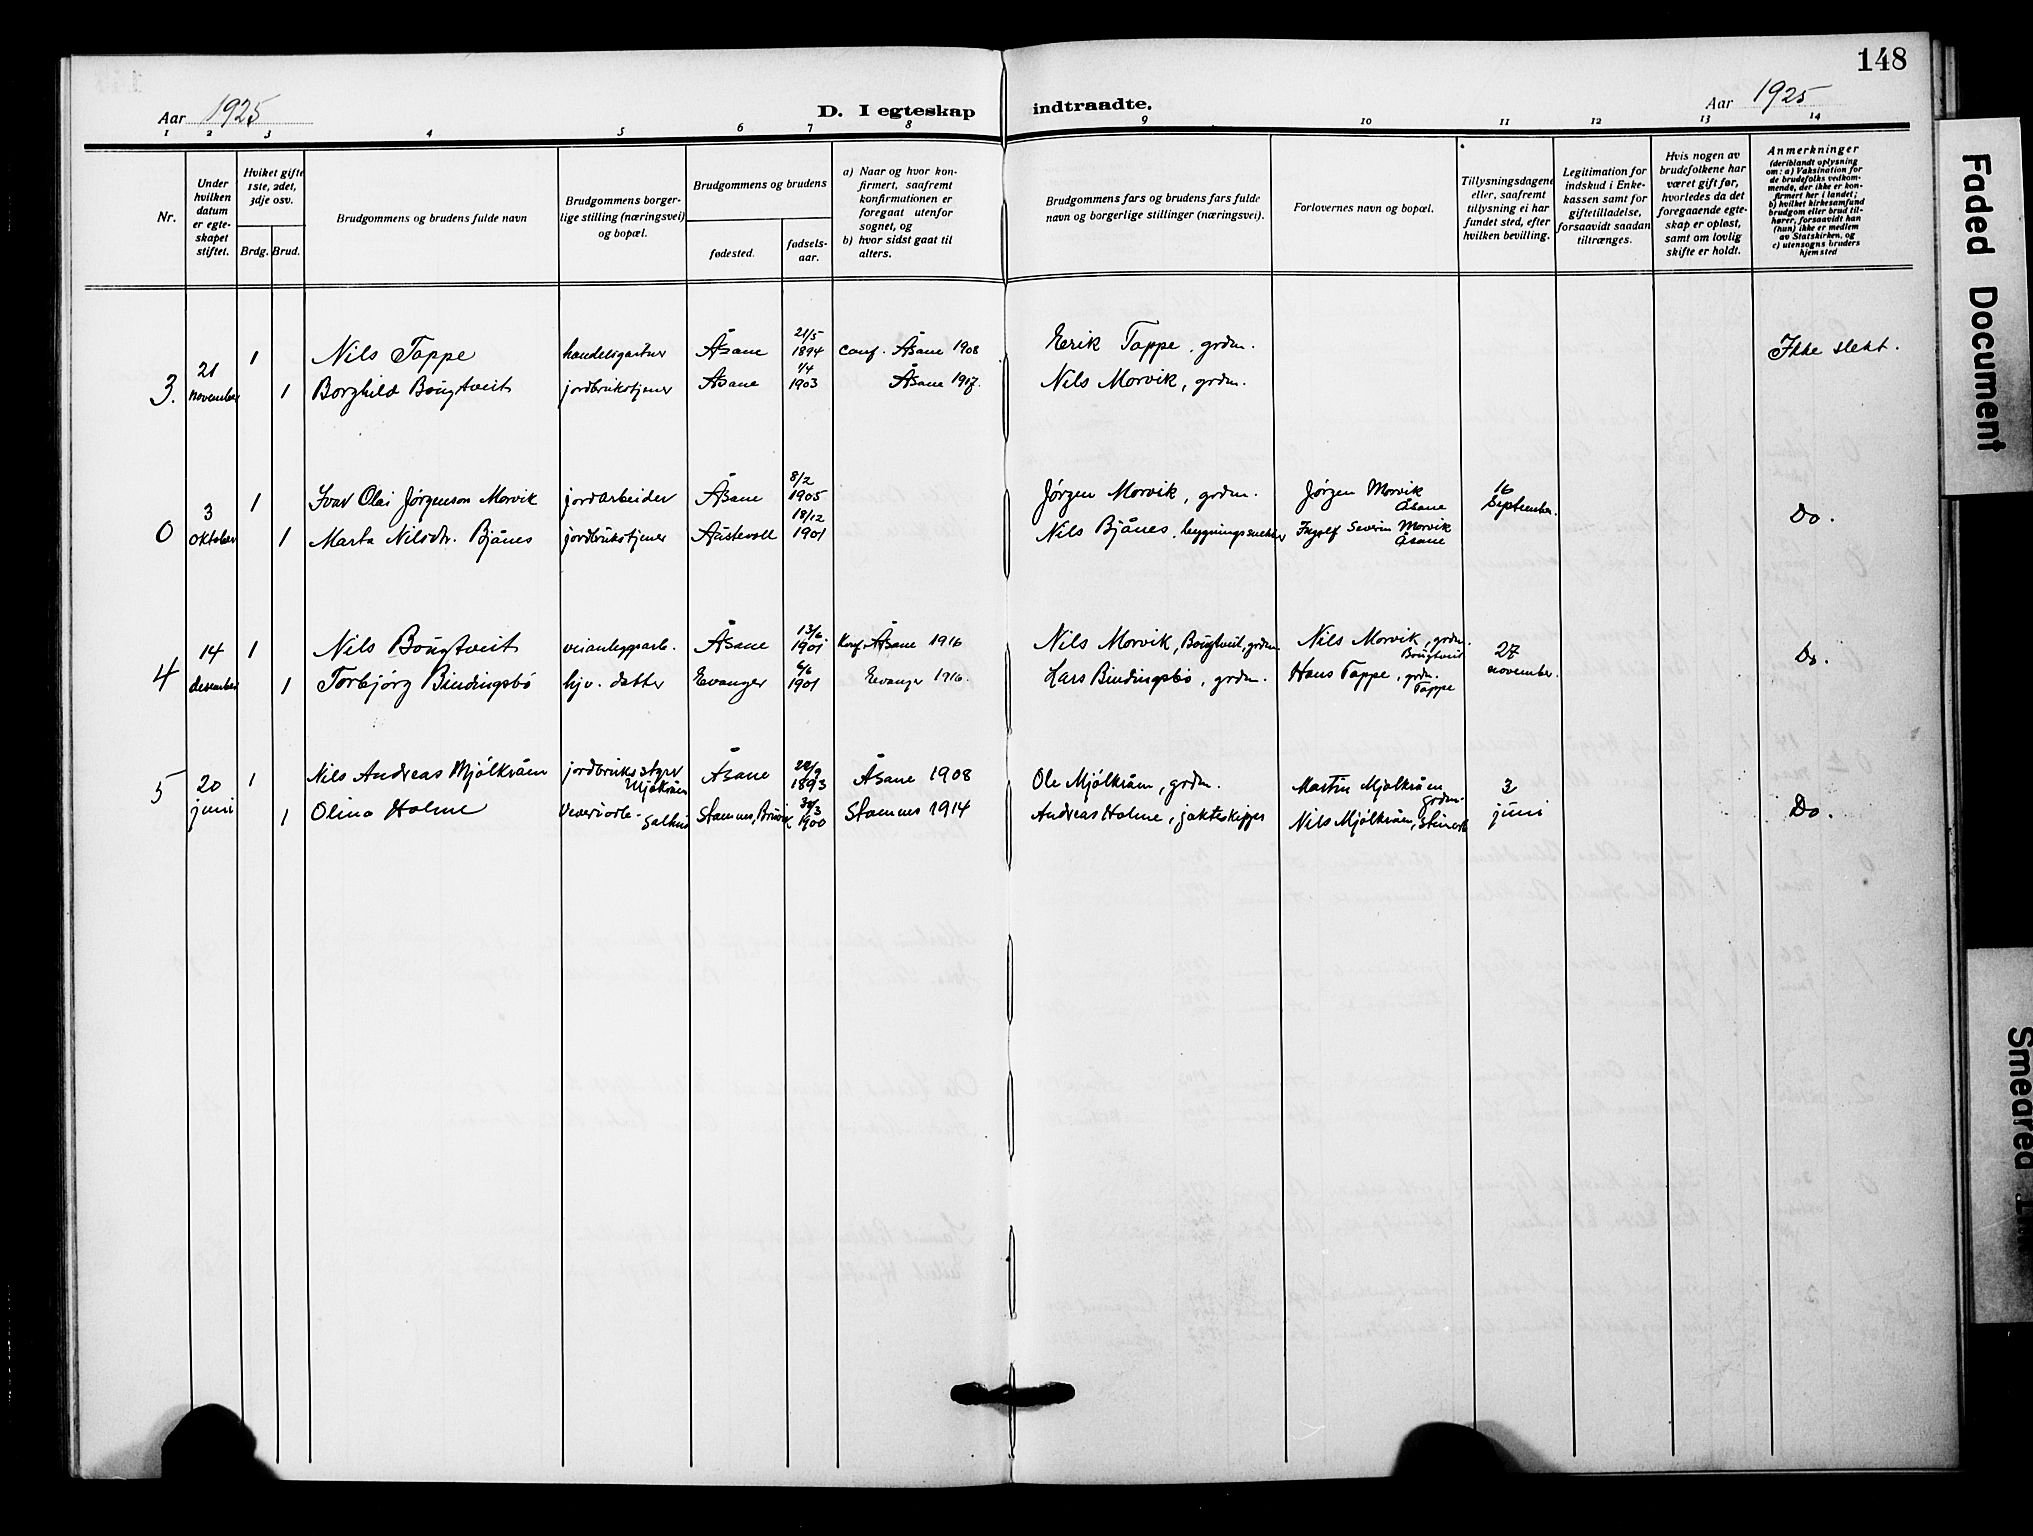 148
Aar 1925
D. I egteskap indtraadte.
Aar 1925
1 2 3 4 5 6 7 8 9 10 11 12 13 14
Nr.
Under
hvilken
datum
er egte-
skapet
stiftet.
Hviket gifte
1ste, 2det,
3dje osv.
Brdg. Brud.
Brudgommens og brudens fulde navn
Brudgommens borger-
lige stilling (næringsvei)
og bopæl.
Brudgommens og brudens
fødested.
fødsels-
aar.
a) Naar og hvor kon-
firmert, saafremt
konfirmationen er
foregaat utenfor
sognet, og
b) hvor sidst gaat til
alters.
Brudgommens fars og brudens fars fulde
navn og borgerlige stillinger (næringsvei).
Forlovernes navn og bopæl.
Tillysningsdagene
eller, saafremt
tillysning ei har
fundet sted, efter
hvilken bevilling.
Legitimation for
indskud i Enke-
kassen samt for
giftetilladelse,
forsaavidt saadan
tiltrænges.
Hvis nogen av
brudefolkene har
været gift før,
hvorledes da det
foregaaende egte-
skap er opløst,
samt om lovlig
skifte er holdt.
Anmerkninger
(deriblandt oplysning
om: a) Vaksination for
de brudefolks vedkom-
mende, der ikke er kon-
firmert her i landet;
b) hvilket kirkesamfund
brudgom eller brud til-
hører, forsaavidt han
(hun) ikke er medlem
av Statskirken, og
c) utensogns bruders
hjemsted
3. 21 november
1 Nils Tappe handelsgartner Åsane 21/5 1894 conf. Åsane 1908 Eerik Tappe, grdm. Ikke slekt.
1 Borghild Bougtveit jordbrukstjener Åsane 1/4 1903 Åsane 1917. Nils Morvik, grdm.
0 3 oktober
1 Ivar Olai Jørgenson Morvik jordarbeider Åsane 8/2 1905 Jørgen Morvik, grdm. Jørgen Morvik Åsane 16 September. Do.
1 Marta Nilsdtr. Bjånes jordbrukstjener Austevoll 18/12 1901 Nils Bjånes, bygningssnekker Ingolf Severin Morvik Åsane
4 14 desember
1 Nils Bougtveit veianleggsarb. Åsane 13/6 1901 Konf. Åsane 1916 Nils Morvik, Bougtveit, grdm. Nils Morvik, grdm. Bougtveit 27 november. Do.
1 Torbjørg Bindingsbø hjv. datter Evanger 6/6 1901 Evanger 1916. Lars Bindingsbø, grdm. Hans Tappe, grdm. Tappe
5 20 juni
1 Nils Andreas Mjølkråen jordbruksstyrer Mjølkråen Åsane 1893 Åsane 1908 Ole Mjølkråen, grdm. Martin Mjølkråen grdm. 3 juni Do.
1 Olina Holme Stamnes, 1900 Stamnes 1914 Andreas Holme, jakteskipper Nils Mjølkråen,
Faded Document
Smeared